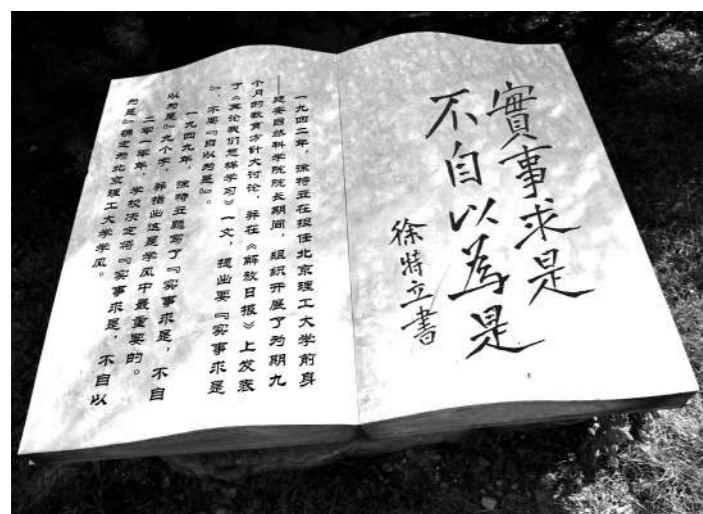 實事求是
不自以為是
徐特立書
一九四二年，徐特立在担任北京理工大学前身
——延安自然科学院院长期间，组织开展了为期九
个月的教育方针大讨论，并在《解放日报》上发表
了《再论我们怎样学习》一文，提出要『实事求是
』，不要『自以为是』。
一九四九年，徐特立题写了『实事求是，不自
以为是』九个字，并指出这是学风中最重要的。
二零一零年，学校决定将『实事求是，不自以
为是』确定为北京理工大学学风。